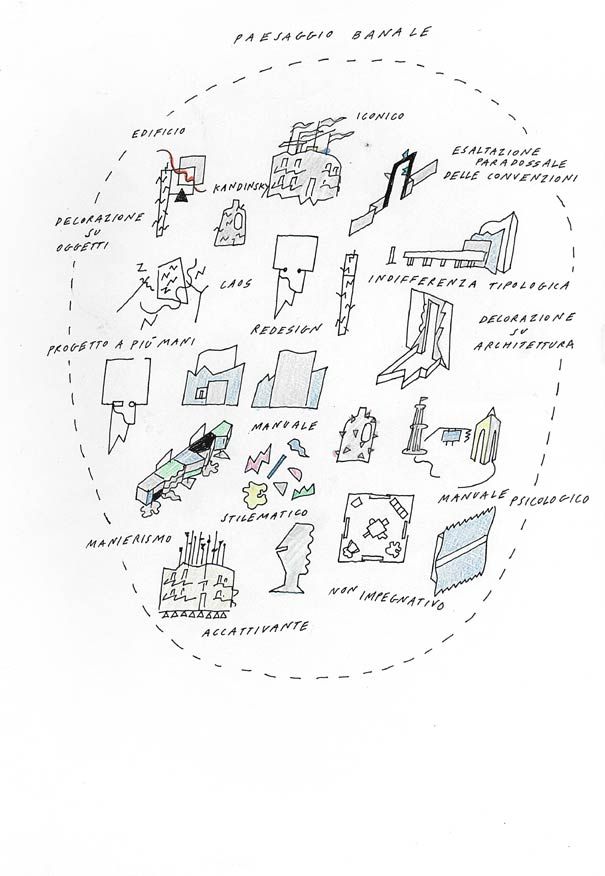 PAESAGGIO BANALE
EDIFICIO
ICONICO
ESALTAZIONE
PARADOSSALE
DELLE CONVENZIONI
KANDINSKY
DECORAZIONE
SU
OGGETTI
CAOS
INDIFFERENZA TIPOLOGICA
REDESIGN
DECORAZIONE
SU
ARCHITETTURA
PROGETTO A PIÙ MANI
MANUALE
MANUALE PSICOLOGICO
STILEMATICO
MANIERISMO
NON IMPEGNATIVO
ACCATTIVANTE